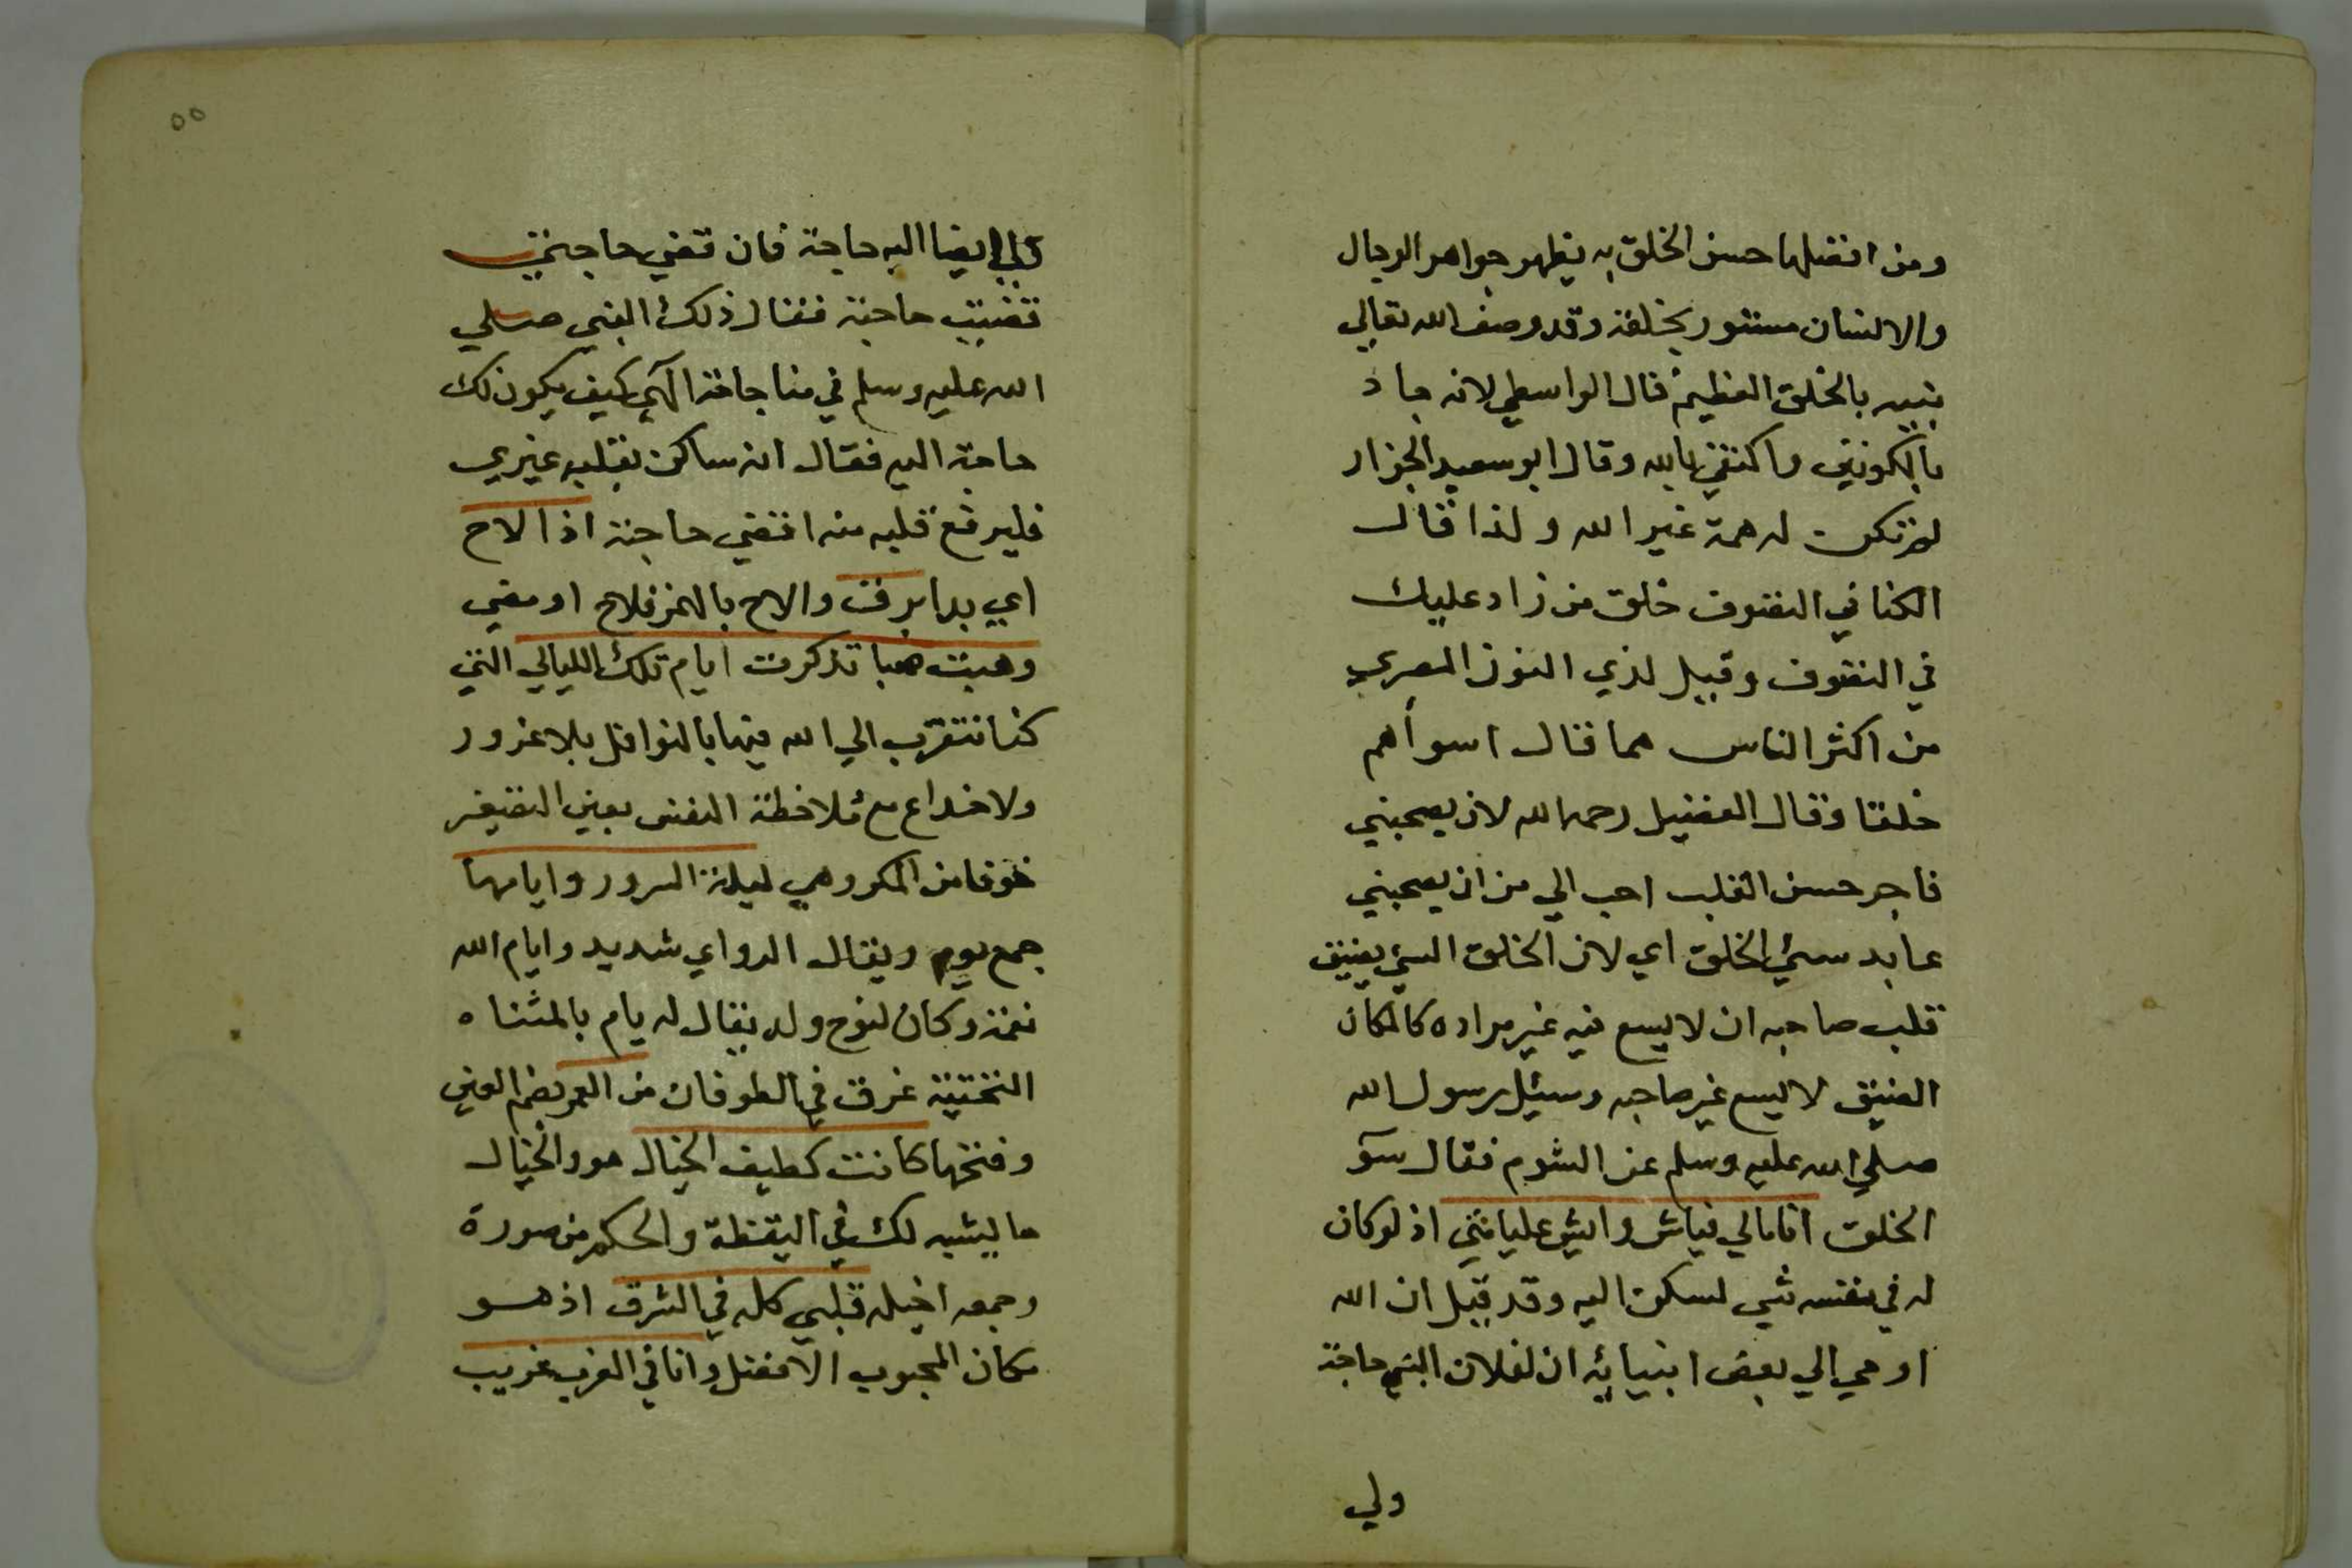 ومن افضلها حسن الخلق به يظهر جواهر الرجال
والانسان مستور بخلقه وقد وصف الله تعالي
نبيه بالخلق العظيم قال الواسطي لانه جاد
بالكونين واكتفي بالله وقال ابو سعيد الخزار
لم تكن له همة غير الله ولذا قال
الكتاني التصوف خلق من زاد عليك
في التصوف وقيل لذي النون المصري
من اكثر الناس هما قال اسوأهم
خلقا وقال الفضيل رحمه الله لان يصحبني
فاجر حسن القلب احب الي من ان يصحبني
عابد سئ الخلق اي لان الخلق السئ يضيق
قلب صاحبه ان لا يسع فيه غير مراده كالمكان
الضيق لا يسع غير صاحبه وسئل رسول الله
صلي الله عليه وسلم عن الشوم فقال سوٓ
الخلق انا مالي فياش وايش عليا مني اذ لو كان
له في نفسه شي لسكن اليه وقد قيل ان الله
اوحي الي بعض انبيائه ان لفلان النبي حاجة
ولي
ولي ايضا اليه حاجة فان قضي حاجتي
قضيت حاجته فقال ذلك النبي صلي
الله عليه وسلم في مناجاته الٓهي كيف يكون لك
حاجة اليه فقال انه ساكن بقلبه غيري
فليرفع قلبه منه اقضي حاجته اذا لاح
اي بدا برقت والاح بالهمز فلاح اومضي
وهبت هبا تذكرت ايام تلك الليالي التي
كنا نتقرب الي الله فيها بالنوافل بلا غرور
ولا خداع مع ملاحظة النفس بعين التقصير
خوفا من المكر وهي ليلة السرور وايامها
جمع يوم ويقال الدواي شديد وايام الله
نعمة وكان لنوح ولد يقال له يام بالمثناه
التختية غرق في الطوفان من العمر بضم العين
وفتحها كانت كطيف الخيال هو والخيال
ما يشبه لك في اليقظة والحكم من صورة
وجمعه اخيله قلبي كله في الشرق اذ هو
مكان المحبوب الافضل وانا في الغرب غريب
٥٥